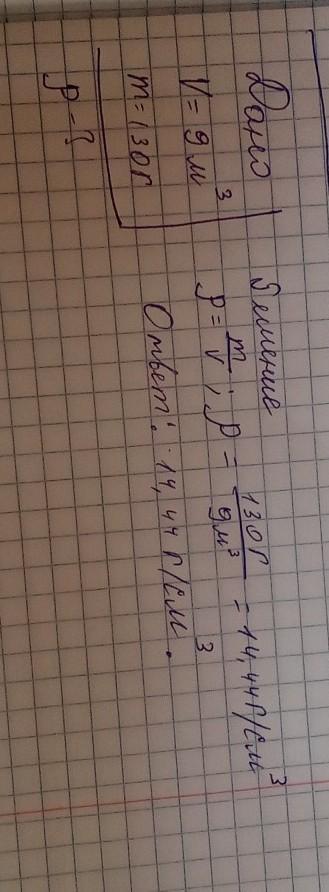 Дано
V = 9 м³
m = 130 г
ρ - ?
Решение
ρ = m/V ; ρ = 130 г/9 м³ = 14,44 г/см³
Ответ: 14,44 г/см³.